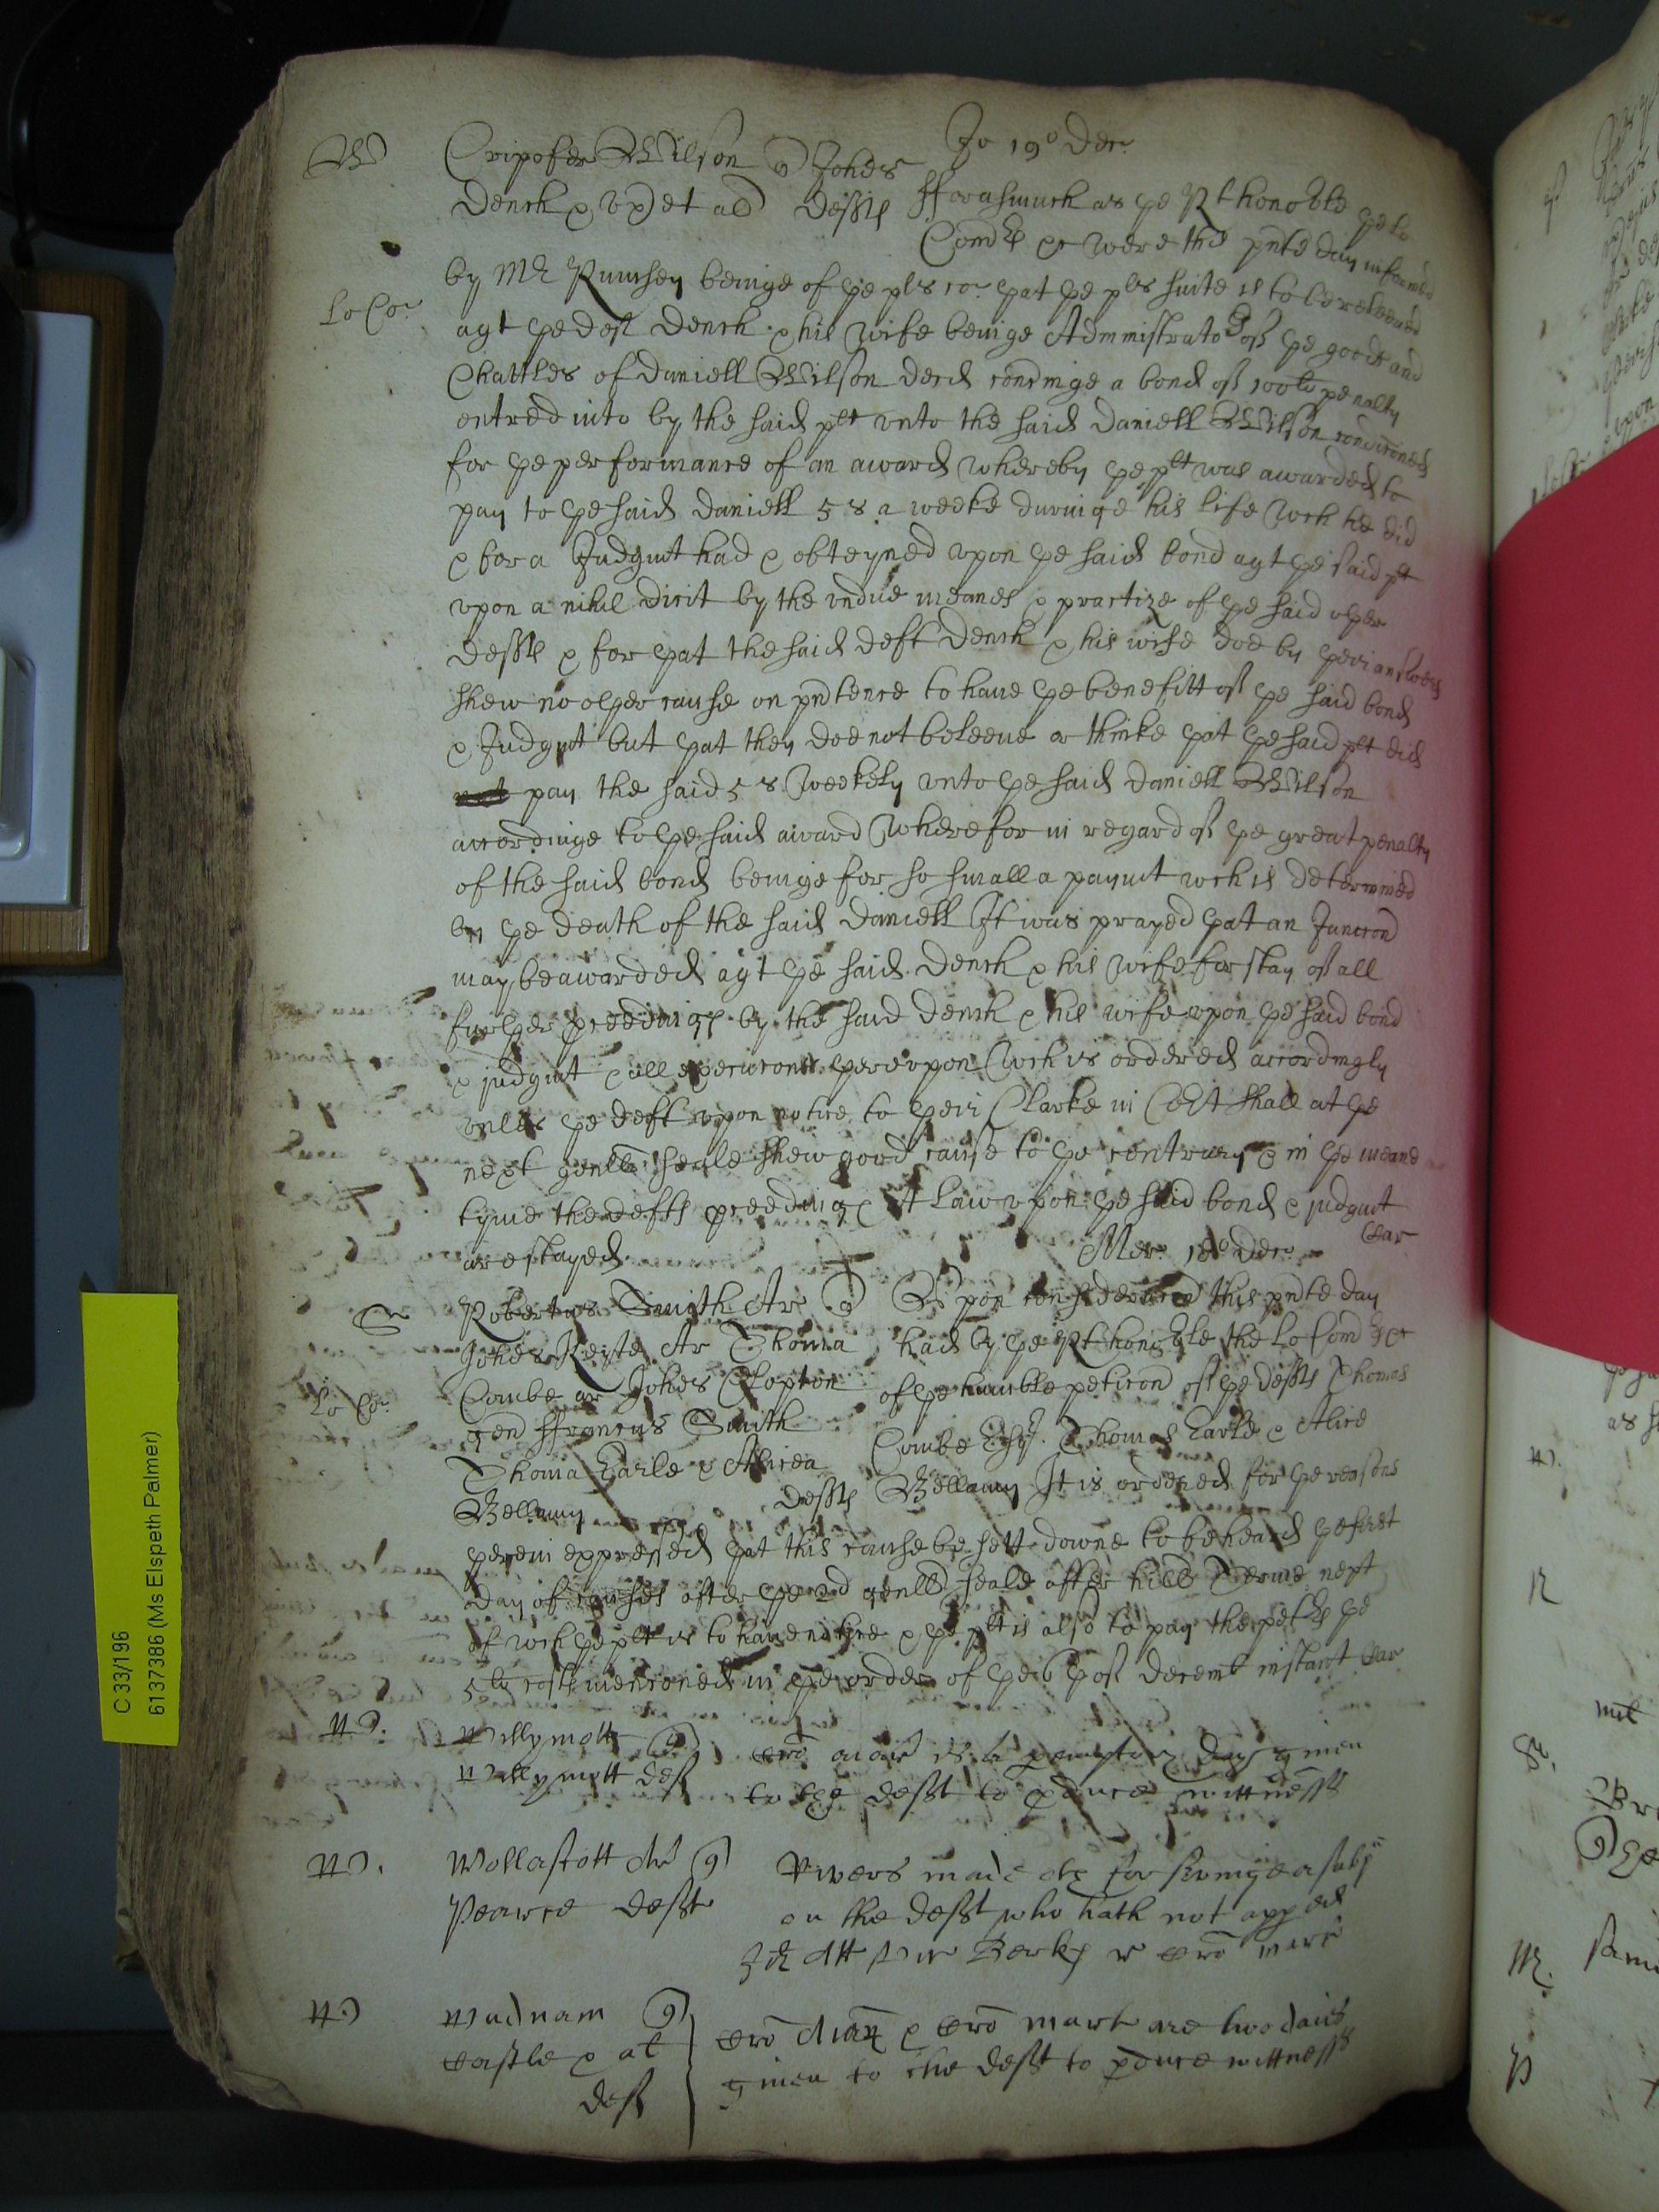 W Cripofer Wilson q Johes Jo 19o Decr
Dench & vx et al defts fforasmuch as ye Rt honoble ye Lo
Comrs &c were this pnte day informed
Lo Cor by Mr Rumsey beinge of ye pls co: yat ye pls suite is to be releeved
agt ye deft Dench & his wife beinge Administrators of ye goods and
Chattles of Daniell Wilson decd concringe a bond of 100li penalty
entred into by the said plt unto the said Daniell Wilson condicioned
for ye performance of an award whereby ye plt was awarded to
pay to ye said Daniell 5 s a weeke duringe his life wch he did
& for a Judgmt had & obteyned upon ye said bond agt ye said plt
upon a nihil dicit by the undue meanes & practize of ye said oyer
defts & for yat the said deft Dench & his wife doe by yeir answers
shew no oyer cause or pretence to have ye benefitt of ye said bond
& Judgmt but yat they doe not beleeve or thinke yat ye said plt did
not pay the said 5 s weekely unto ye said Daniell Wilson
accordinge to ye said award wherefor in regard of ye great penalty
of the said bond beinge for so small a paymt wch is determined
by ye death of the said Daniell It was prayed yat an Junccon
may be awarded agt ye said Dench & his wife for stay of all
furyer pceedings by the said Dench & his wife upon ye said bond
& judgmt & all execucons yereupon wch is ordered accordingly
unles ye deft upon notice to yeir Clarke in Cort shall at ye
next genll seale shew good cause to ye contrary & in ye meane
tyme the defts pceedings at Law upon ye said bond & judgmt
are stayed
Mer 18o Decr
Sr Robertus Smith Ar q Upon consideracon this pnte day
Johes Keyte Ar Thoma had by ye Rt honoble the Lo Comrs &c
Lo Cor Combe ar Johes Clopton of ye humble peticon of ye defts Thomas
gen ffrancus Smith Combe Esqr Thomas Earle & Alice
Thoma Earle & Alicea
Bellamy defts Bellamy It is ordered for ye reasons
yerein expressed yat this cause be sett downe to be heard ye first
day of causes after ye 2d genll seale after hill Terme next
of wch ye plt is to have notice & ye plt is also to pay the petrs ye
5li costs mencioned in ye order of ye 6th of Decemb instant
Willymott q
Willymott def is a peremptory day given
to the deft to pduce wittnesses
Wollascott Ar q made for serving a subp
Pearce deft on the deft who hath not apped
Wadnam q
Castle & al are two daies
def given to the deft to pduce wittnesses
C 33/196
6137386 (Ms Elspeth Palmer)